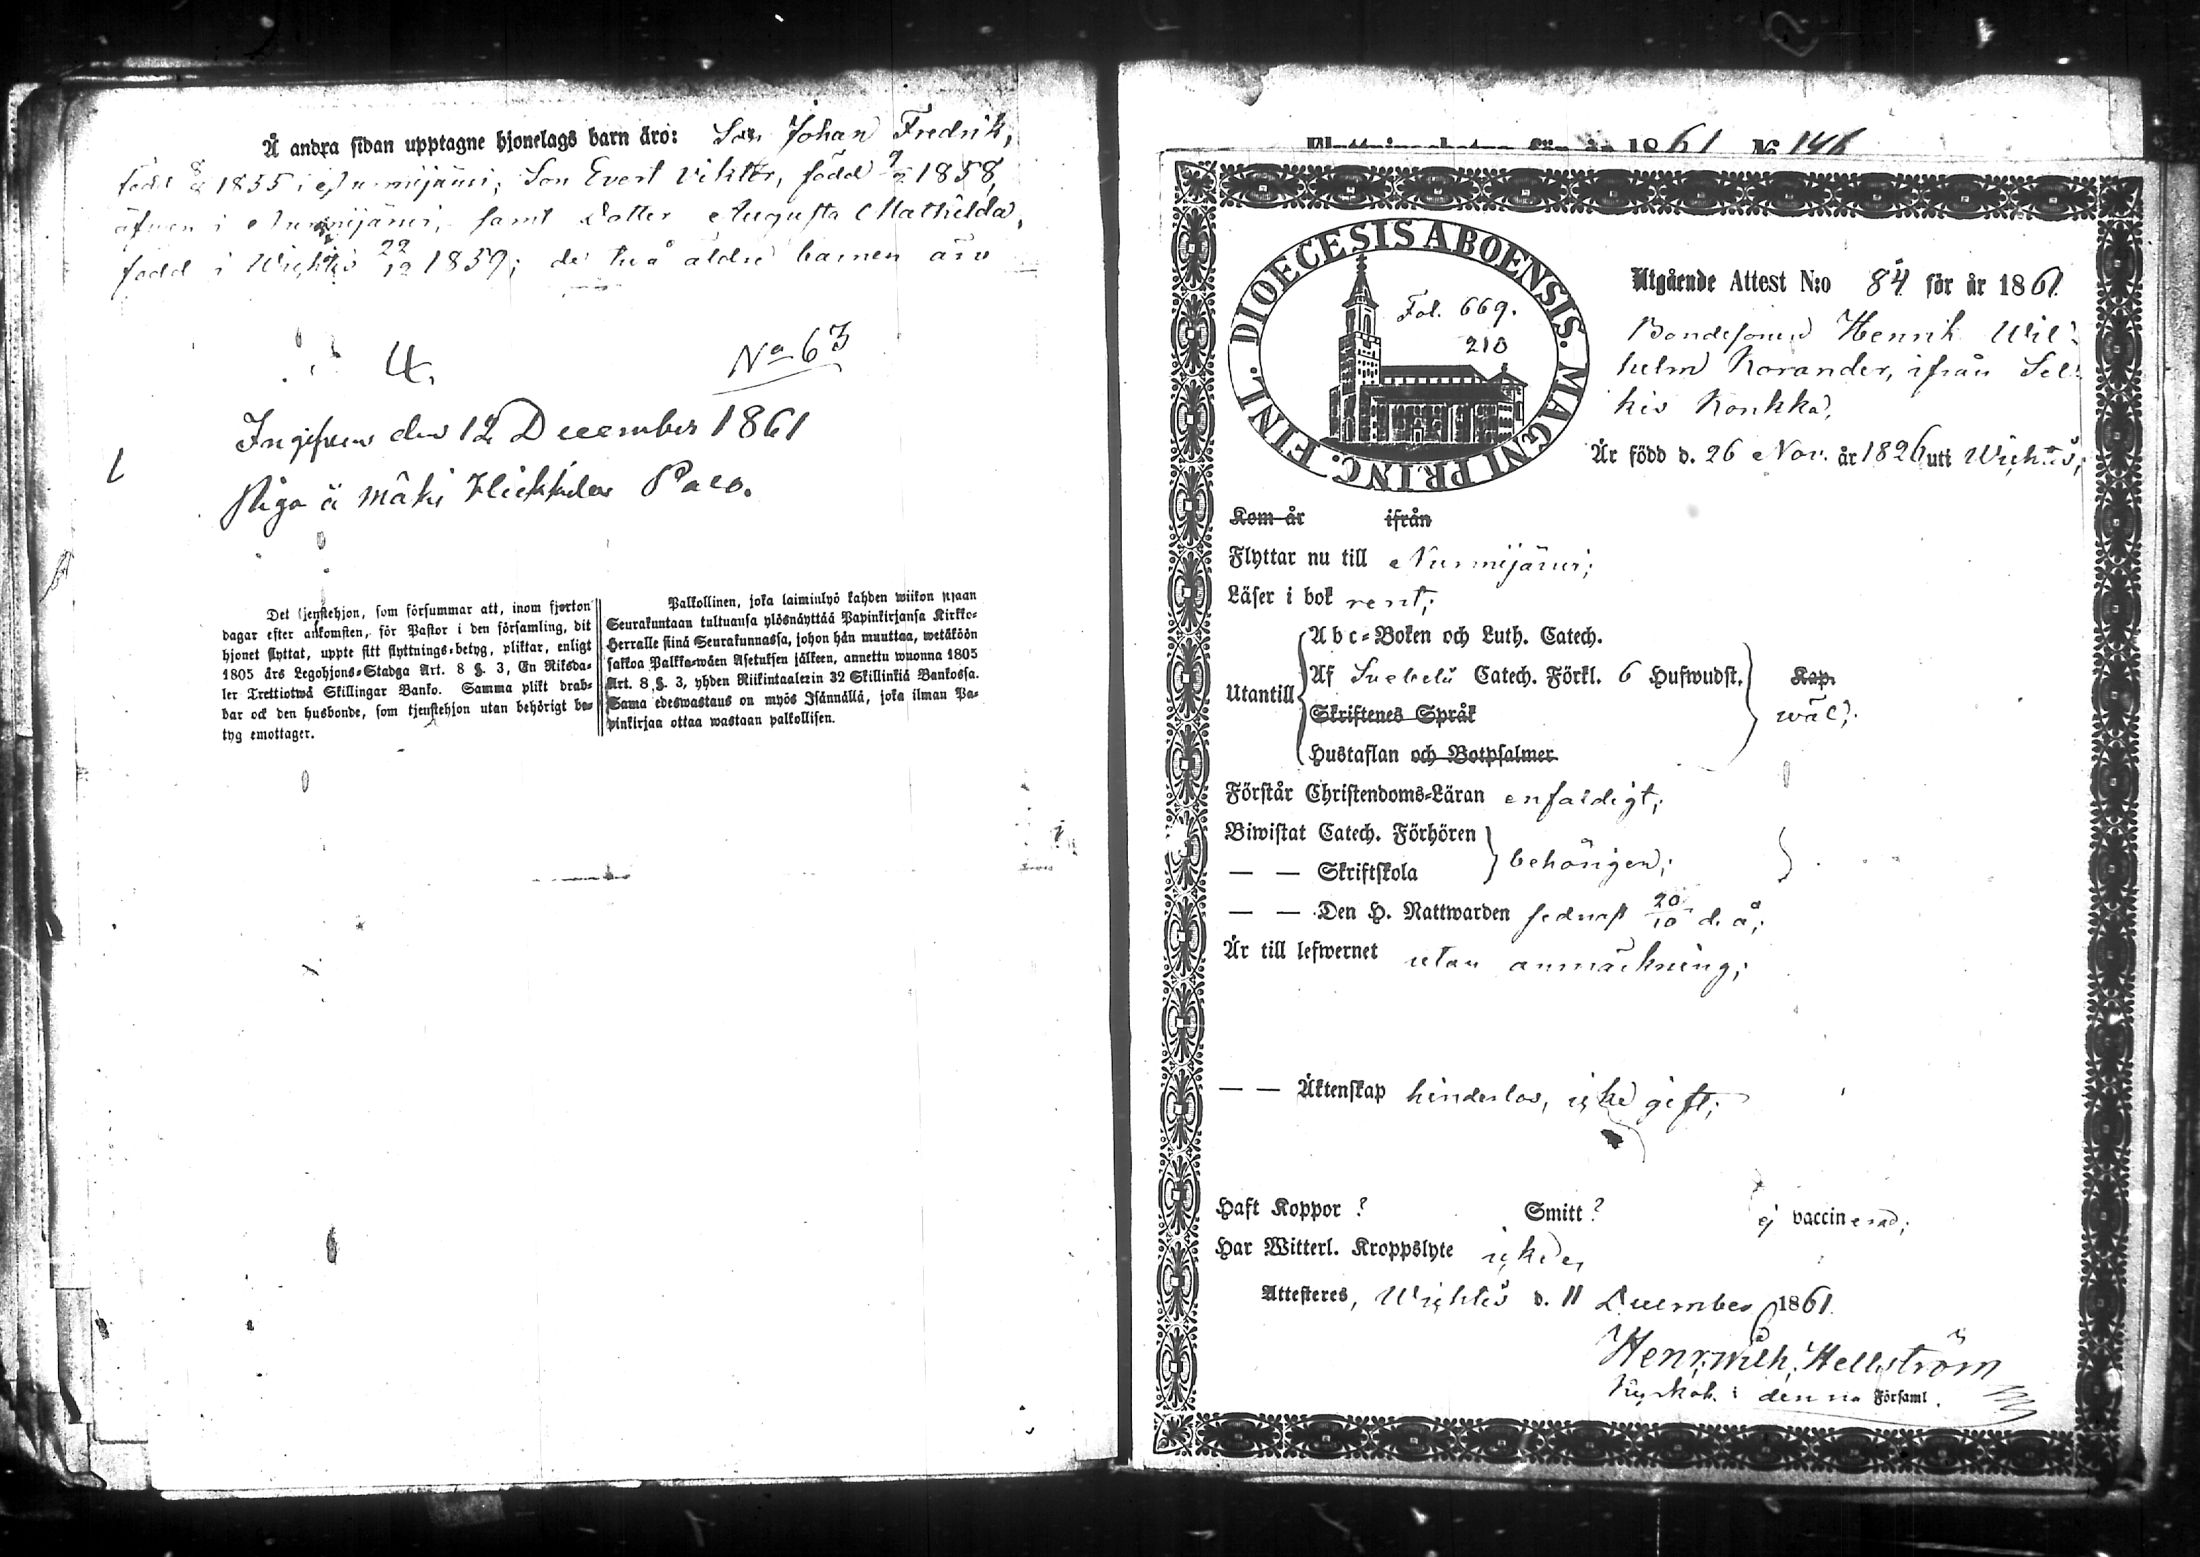 Å andra sidan upptagne hjonelags barn äro: Son Johan Fredrik,
född 1855 i Nurmijärvi; Son Evert Viktor, född 1858,
äfven i Nurmijärvi, samt Dotter Augusta Mathilda,
född i Wichtis 22/12 1859; de två äldre barnen äro
4.
No 63
Ingifven den 12 December 1861
Piga å Mäki
Det tjenstehjon, som försummar att, inom fjorton
dagar efter ankomsten, för Pastor i den församling, dit
hjonet flyttat, uppte sitt flyttnings-betyg, pliktar, enligt
1805 års Legohjons-Stadga Art. 8 §. 3, En Riksda-
ler Trettiotwå Skillingar Banko. Samma plikt drab-
bar ock den husbonde, som tjenstehjon utan behörigt be-
tyg emottager.
Palkollinen, joka laiminlyö kahden wiikon sisään
Seurakuntaan tultuansa ylösnäyttää Papinkirjansa Kirkko-
Herralle siinä Seurakunnassa, johon hän muuttaa, wetäköön
sakkoa Palkka-wäen Asetuksen jälkeen, annettu wuonna 1805
Art. 8 §. 3, yhden Riikintaalerin 32 Skillinkiä Bankossa.
Sama edeswastaus on myös Isännällä, joka ilman Pa-
pinkirjaa ottaa wastaan palkollisen.
1861 No 146
DIOECESIS ABOENSIS. MAGNI PRINC. FINL.
Fol. 669.
210
Utgående Attest N:o 84 för år 1861
Bondesonen Henrik Wil-
helm Korander, ifrån Sel-
kis Konkka,
Är född d. 26 Nov. år 1826 uti Wichtis;
Kom år ifrån
Flyttar nu till Nurmijärvi;
Läser i bok rent;
Utantill
A b c-Boken och Luth. Catech.
Af Svebelii Catech. Förkl. 6 Hufwudst.
Skriftenes Språk
Hustaflan och Botpsalmer
Kap.
väl;
Förstår Christendoms-Läran enfaldigt;
Biwistat Catech. Förhören
— — Skriftskola
behörigen;
— — Den H. Nattwarden sednast 20/10 d. å;
Är till lefwernet utan anmärkning;
— — Äktenskap hinderlös, icke gift;
Haft Koppor ? Smitt ? ej vaccinerad;
Har Witterl. Kroppslyte icke,
Attesteres, Wichtis d. 11 December 1861.
Henr. Wilh. Hellström
Kyrkoh. i denna Församl.